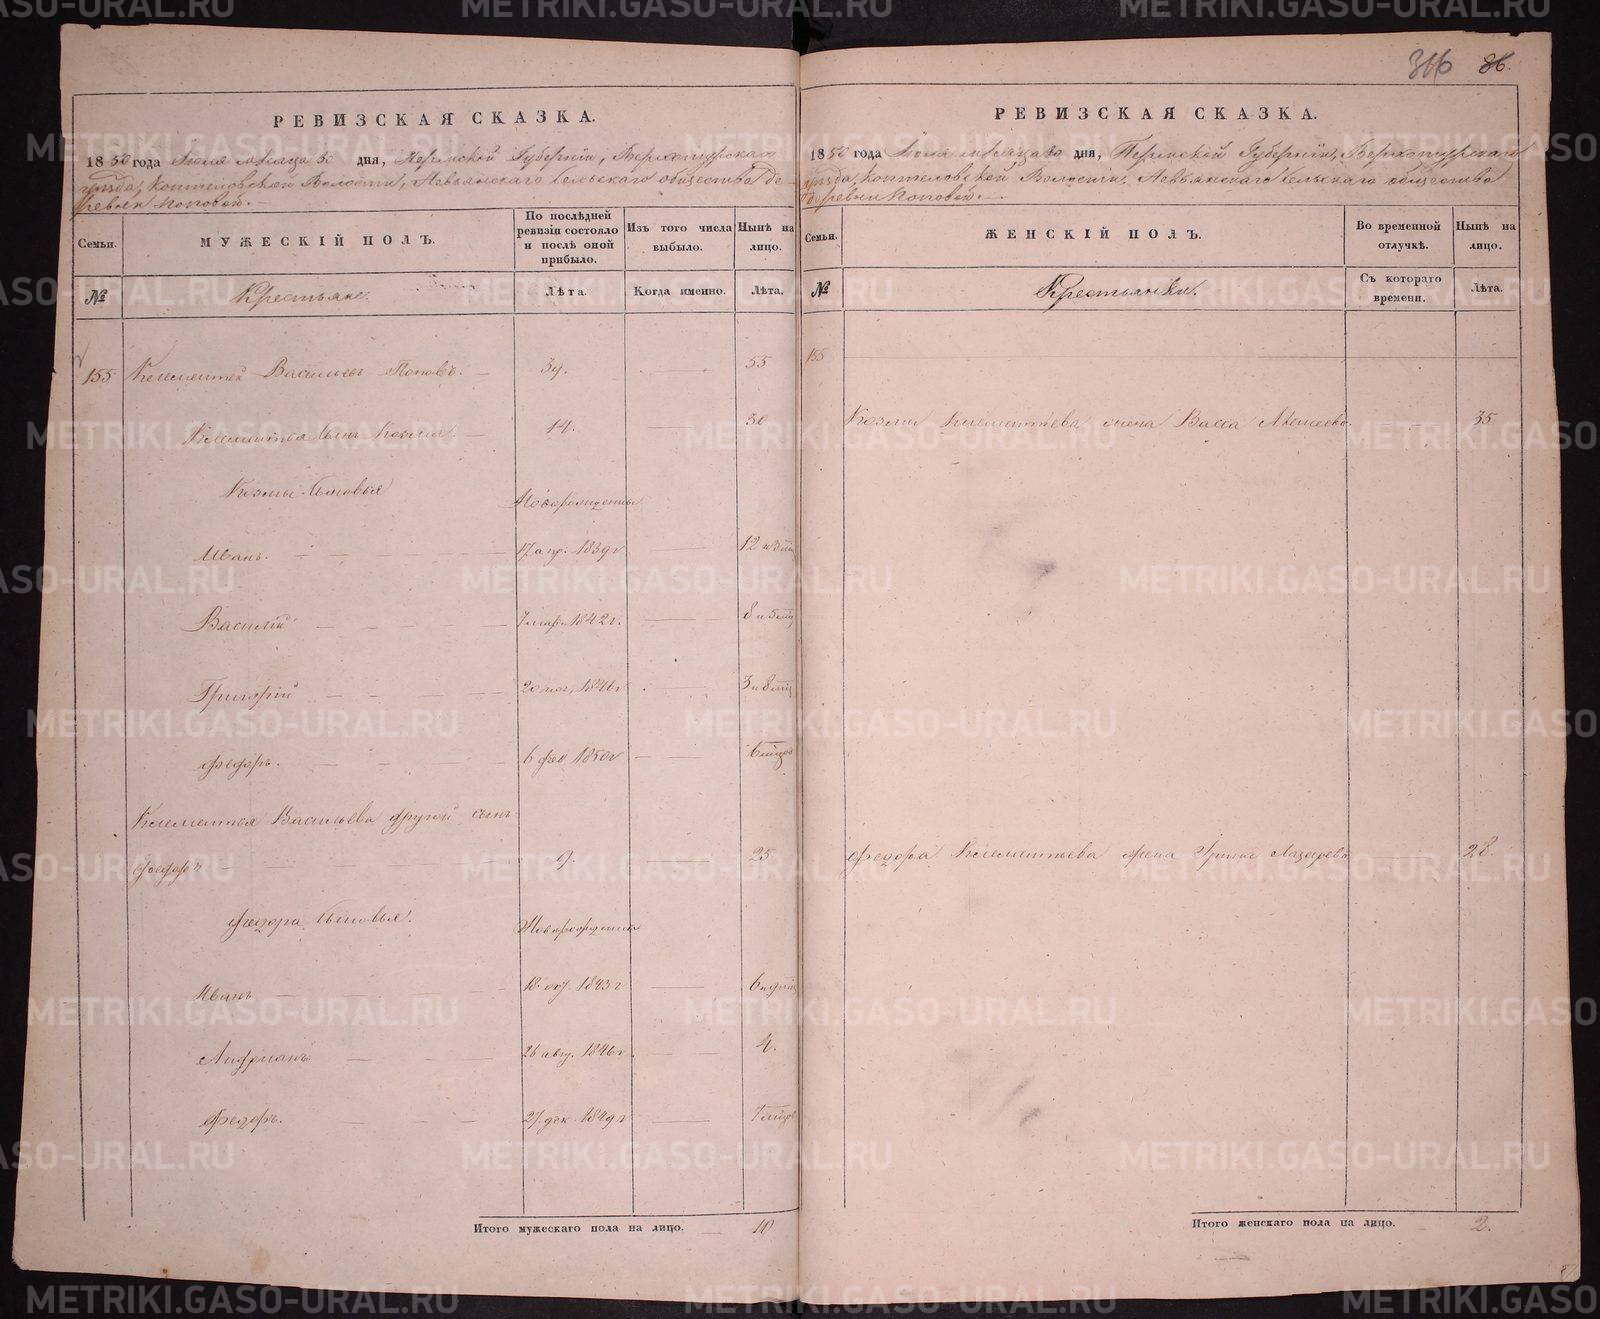 316 86.
РЕВИЗСКАЯ СКАЗКА.
1850 года Июля месяца 30 дня, Пермской Губернии, Верхотурскаго
уезда, Коптеловской Волости, Невьянскаго сельскаго общества де-
ревни Поповой.
Семьи.
МУЖЕСКІЙ ПОЛЪ.
По послѣдней ревизіи состояло и послѣ оной прибыло.
Изъ того числа выбыло.
Нынѣ на лицо.
№
Крестьяне.
Лѣта.
Когда именно.
Лѣта.
155 Клементей Васильевъ Поповъ. — 39. — 55
Клементья сынъ Козма. — 14. — 30
Козмы сыновья Новорожденны
Иванъ. — 17 апр. 1839 г —
Василій — 7 мар. 1842 г. — 8 и 5 мц
Григорій — 20 ног. 1846 г — 3 и 8 мц
Федоръ. — 6 фев 1850 г — 6 мцов
Клементья Васильева другой сынъ
Федоръ — 9. — 25
Федора сыновья. Новорожденны
Иванъ — 18 окт. 1843 г — 6 и 9 мц
Андрианъ — 26 авг. 1846 г. — 4.
Федоръ. — 27 дек. 1849 г — 7 мцов
Итого мужескаго пола на лицо. — 10
РЕВИЗСКАЯ СКАЗКА.
1850 года Июля месяца 30 дня, Пермской Губернии, Верхотурскаго
уезда, Коптеловской Волости, Невьянскаго сельскаго общества
деревни Поповой. —
Семьи.
ЖЕНСКІЙ ПОЛЪ.
Во временной отлучкѣ.
Нынѣ на лицо.
№
Крестьянки.
Съ котораго времени.
Лѣта.
155
Козмы Клементьева жена Васса — 35
Федора Клементьева жена Лазарева — 28.
Итого женскаго пола на лицо. 2.